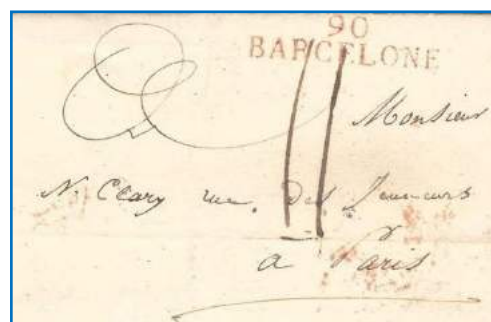 90
BARCELONE
11
Monsieur
N. Clary rue des Jeuneurs
à Paris